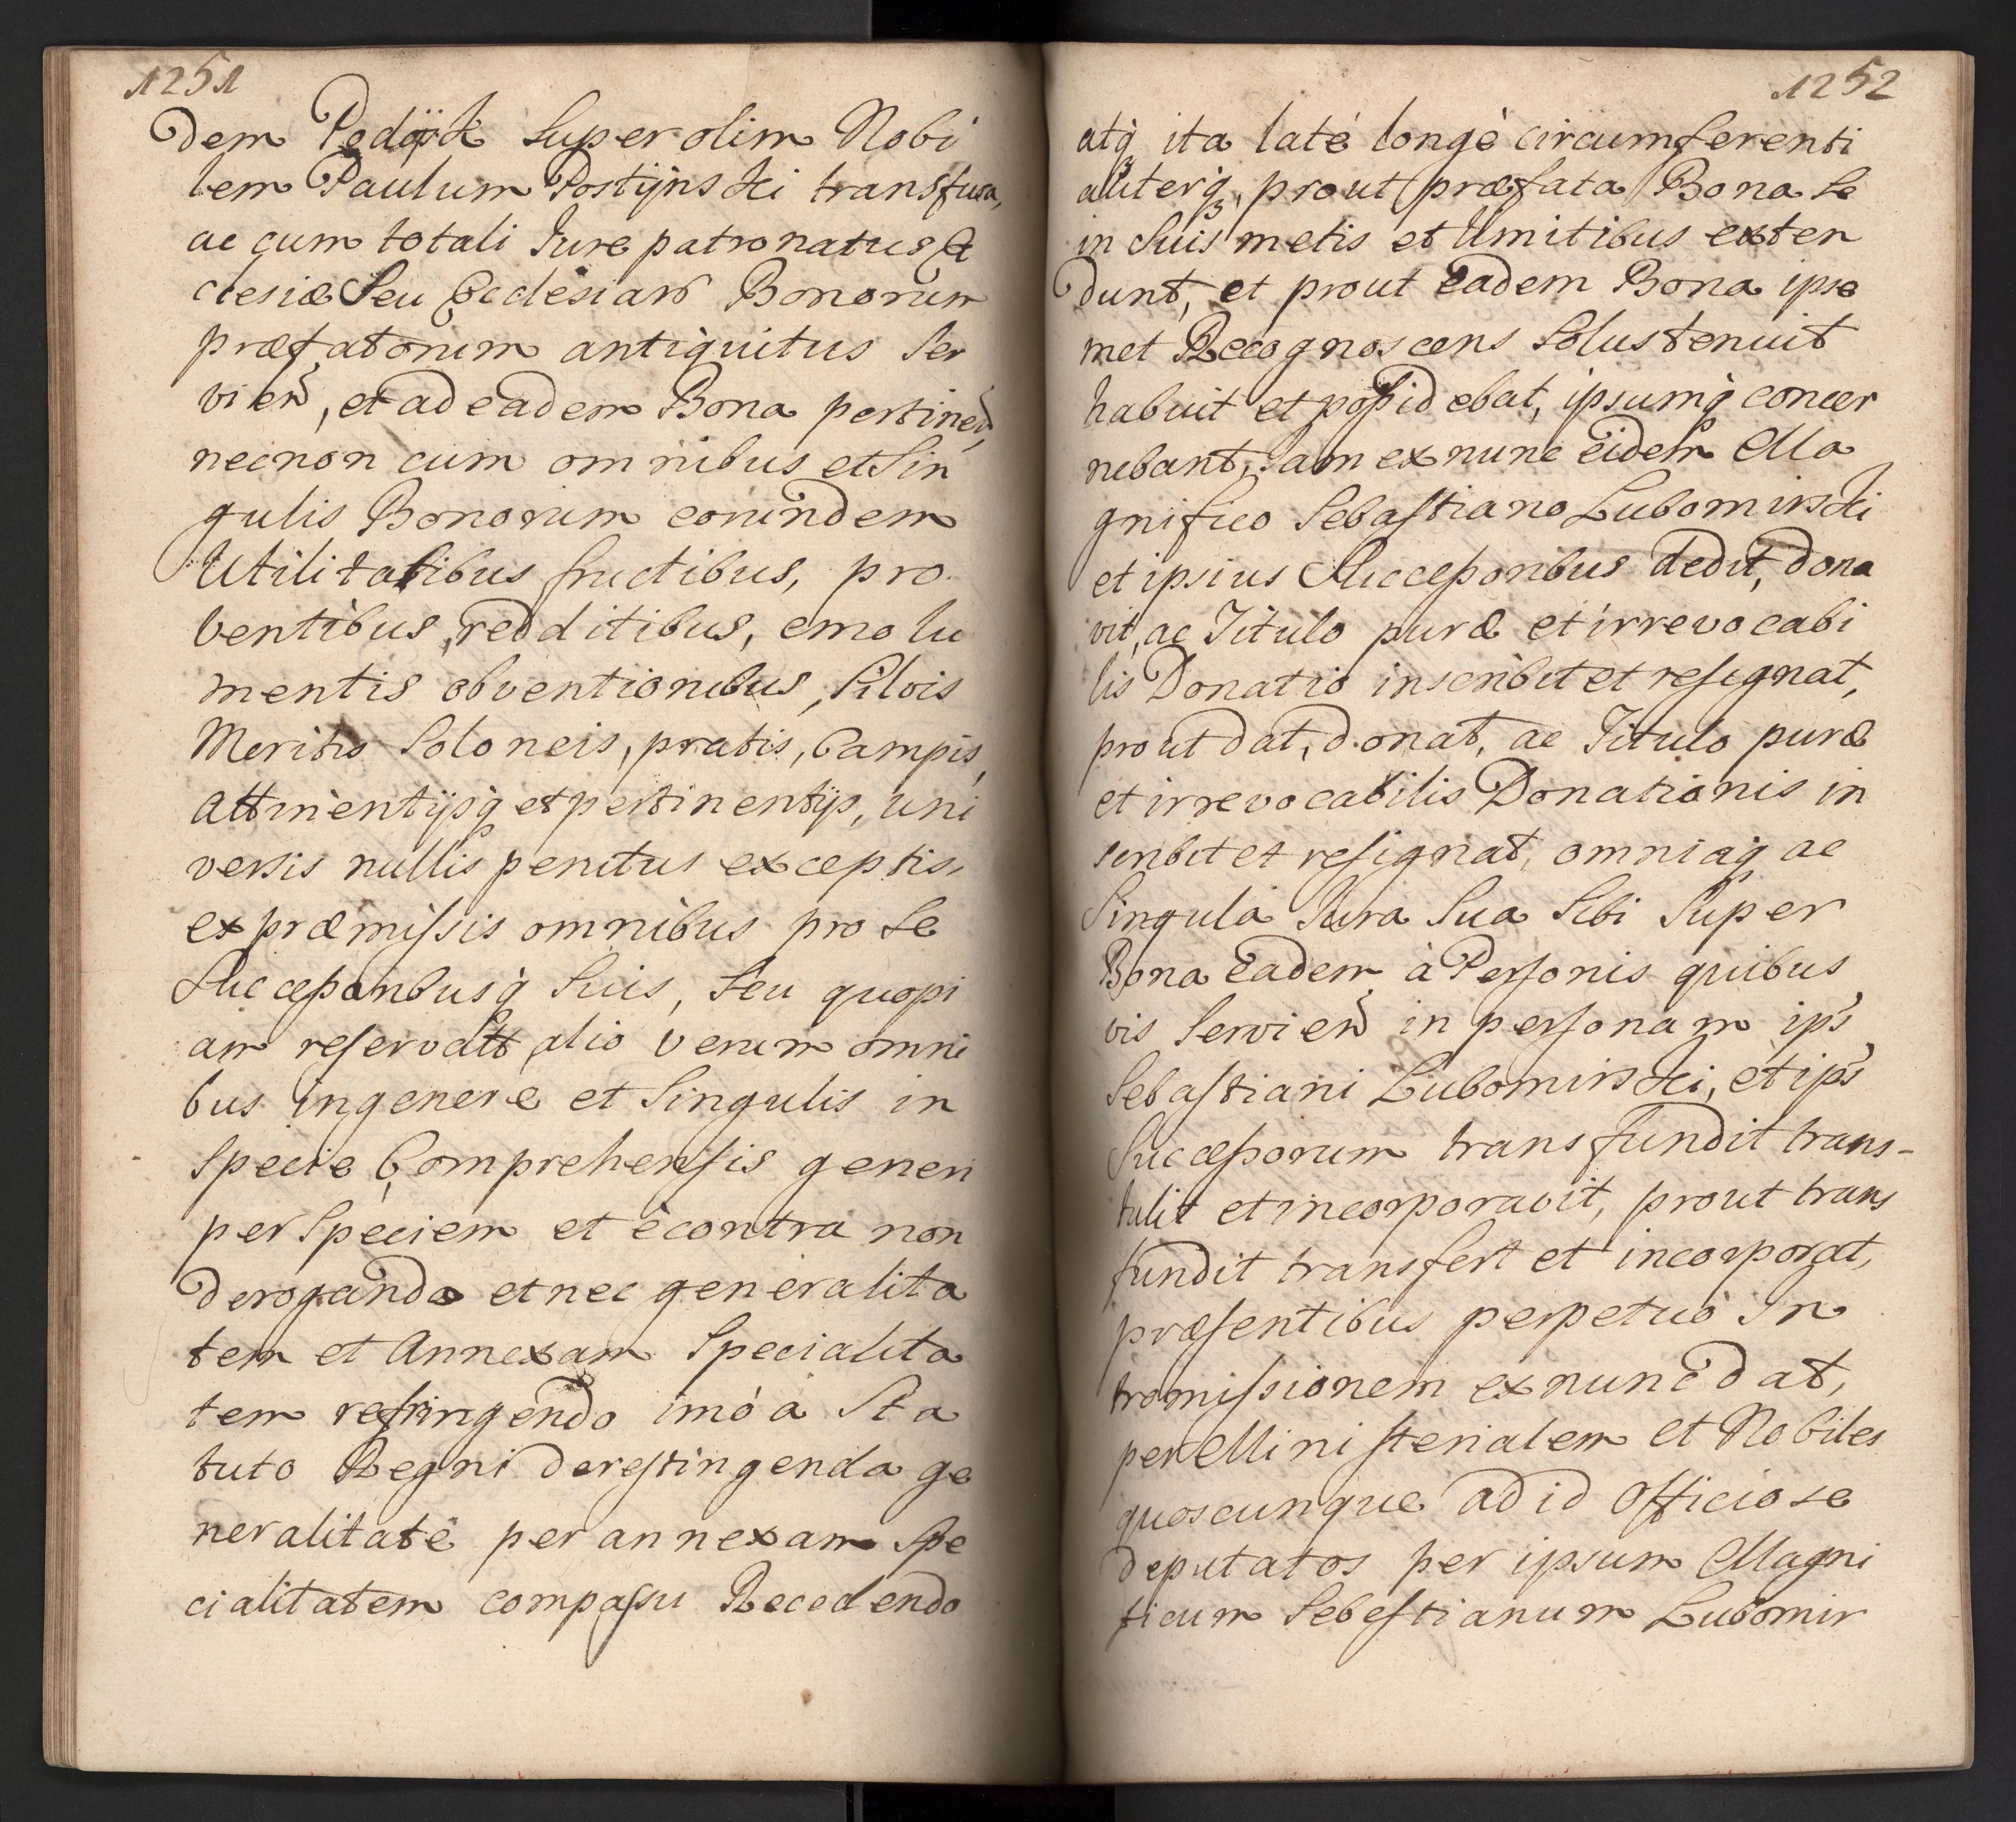 1251
dem Podÿsk Super olim Nobi
lem Paulum Postÿnski transfusa,
ac cum totali Jure patronatus Ec
clesiæ Seu Ecclesiarū Bonorum
præfatorum antiquitus Ser
vien̄, et ad eadem Bona pertinen̄,
necnon cum omnibus et Sin
gulis Bonorum eorundem
Utilitatibus fructibus, pro
ventibus, redditibus, emolu
mentis obventionibus, Silvis
Meritis Soloneis, pratis, Campis,
Attinentÿsq̀ et pertinentÿs, uni
versis nullis penitus exceptis,
ex præmissis omnibus pro se
Successoribusq̀ Suis, Seu quopi
am reservatt alio verum omni
bus in genere et Singulis in
Specie Comprehensis generi
per Speciem et è contra non
derogando et nec generalita
tem et Annexam Specialita
tem restringendo imò à Sta
tuto Regni de restingenda ge
neralitatē per annexam Spe
cialitatem compassu Recedendo
1252
atq̀ ita latè longè circumferenti
aliterq̀, prout præfata Bona Se
in Suis metis et limitibus exten
dunt, et prout eadem Bona ipse
met Recognoscens Solus tenuit
habuit et possidebat, ipsumq̀ concer
nebant, Jam ex nunc eidem Ma
gnifico Sebastiano Lubomirski
et ipsius Successoribus dedit, dona
vit, ac Titulo puræ et irrevocabi
lis Donatio inscribit et resignat,
prout dat, donat, ac Titulo puræ
et irrevocabilis Donationis in
scribit et resignat, omniaq̀ ac
Singula Jura Sua Sibi Super
Bona Eadem à Personis quibus
vis Servien̄ in personam ip̄s
Sebastiani Lubomirski, et ip̄s
Successorum transfundit trans-
tulit et incorporavit, prout trans
fundit transfert et incorporat,
præsentibus perpetuò In
tromissionem ex nunc dat,
per Ministerialem et Nobiles
quoscunque ad id Officiose
deputatos per ipsum Magni
ficum Sebestianum Lubomir